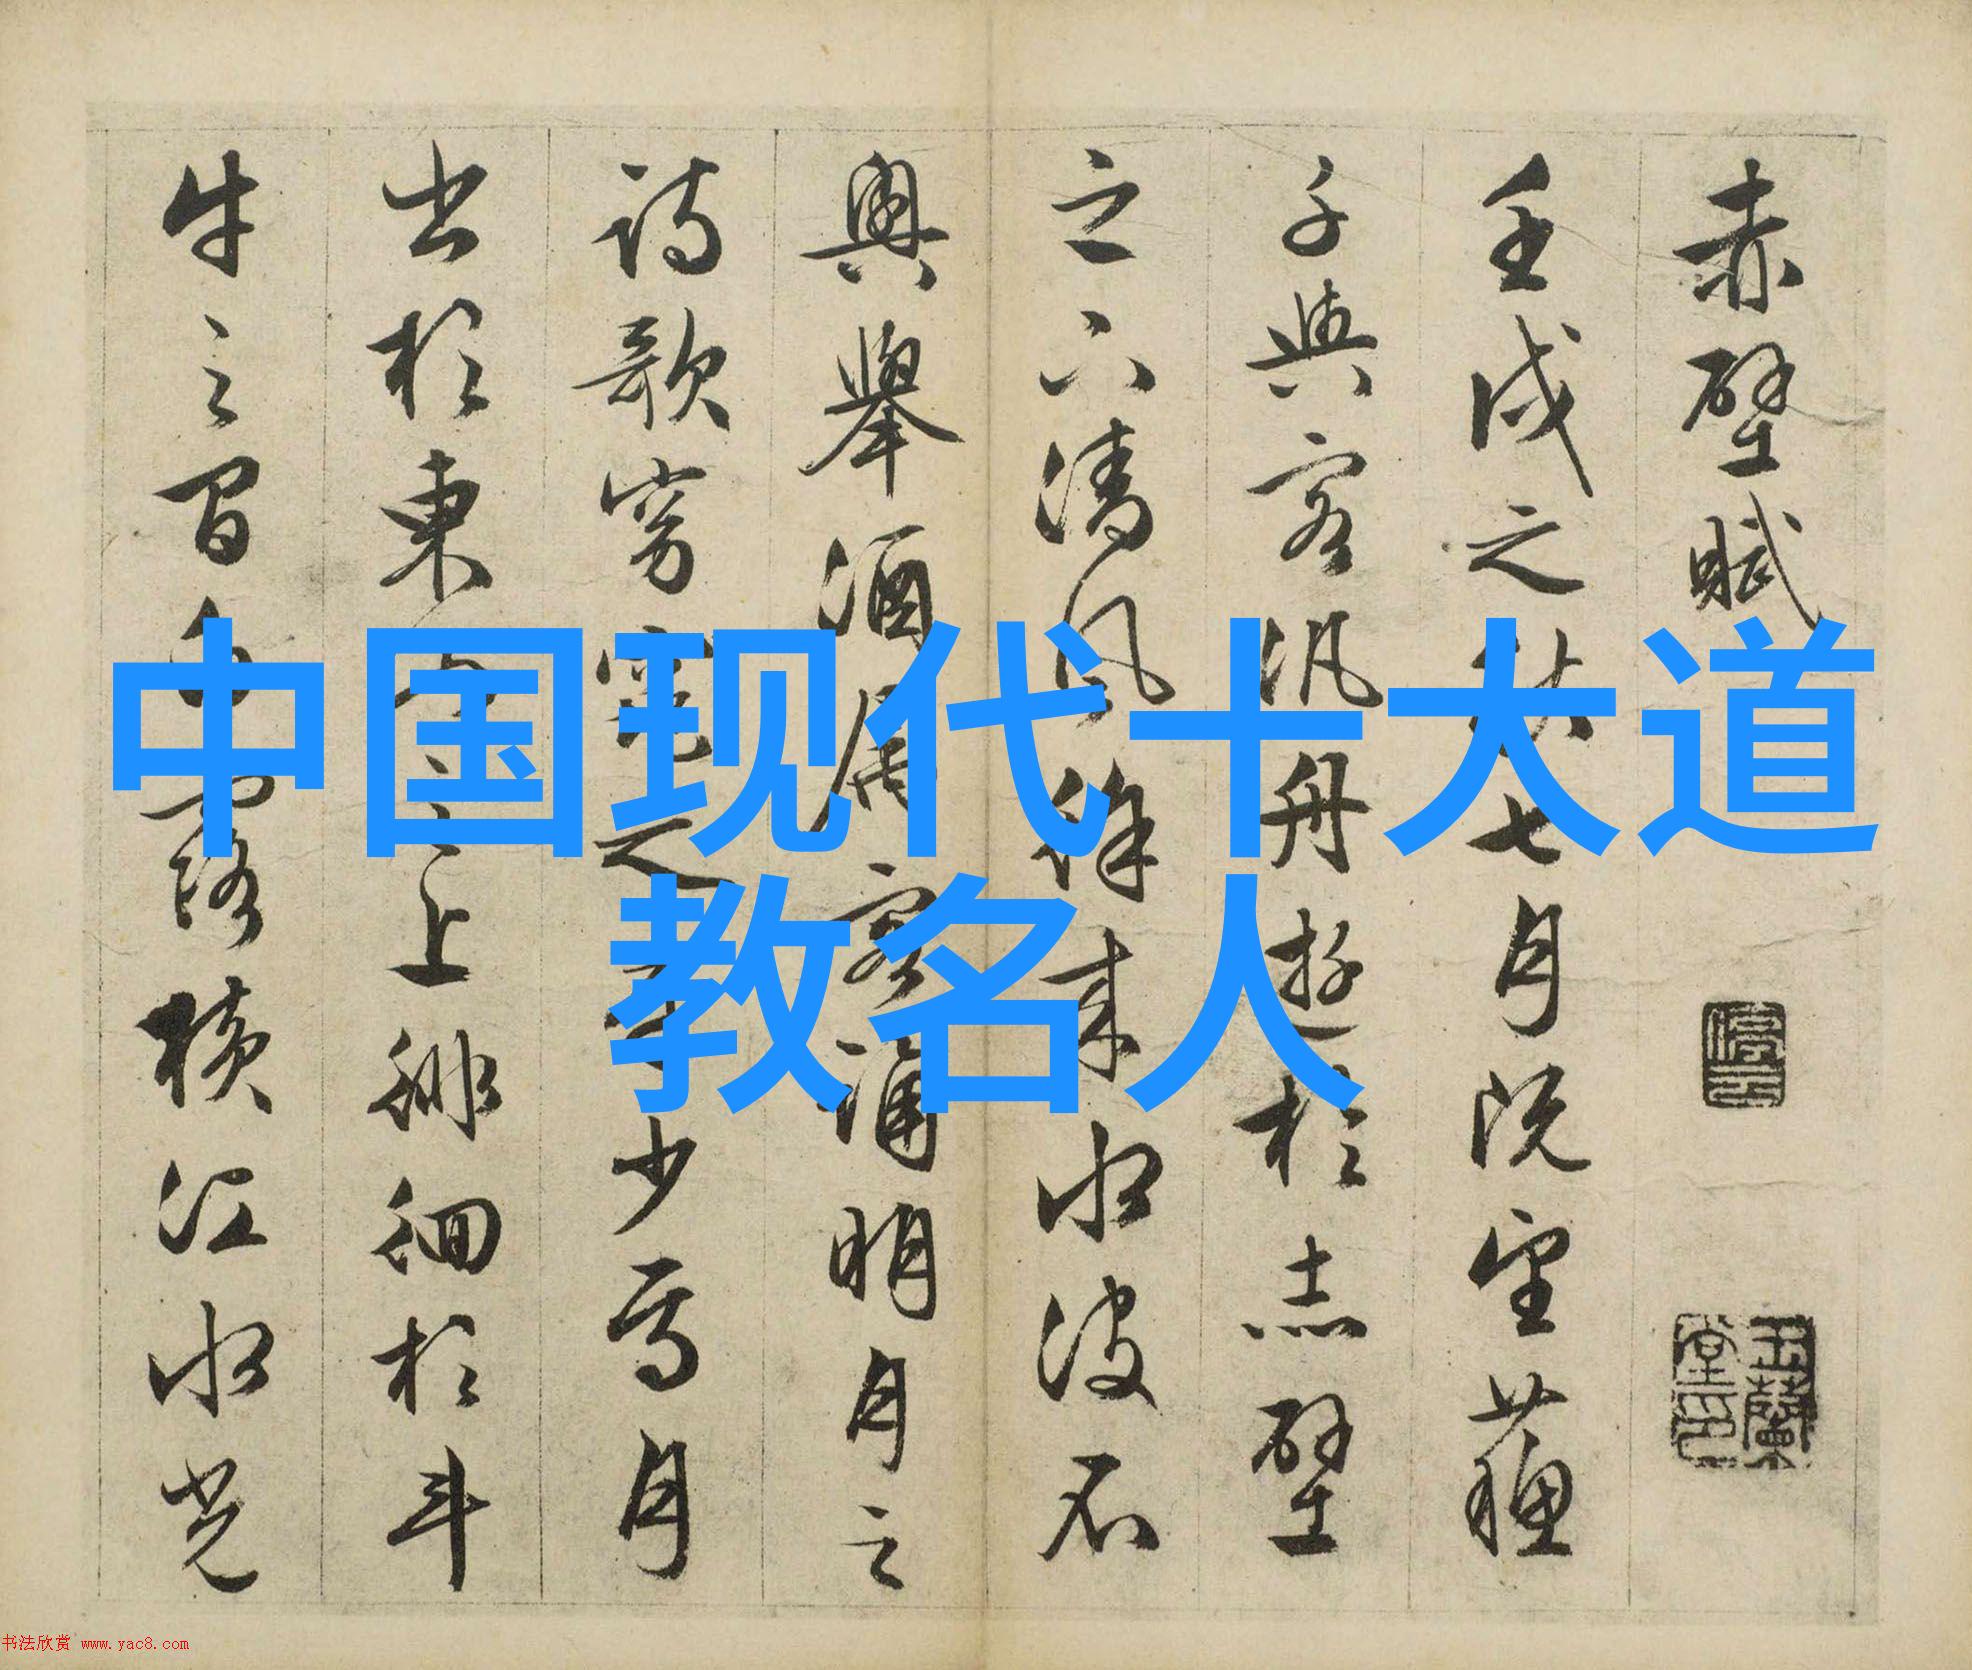 赤壁賦
壬戌之秋七月既望蘓
子與客汎舟遊於赤壁
之下清風徐来水波不
興舉酒属客誦明月之
詩歌窈窕之章少焉月
出於東山之上徘徊於斗
牛之間白露橫江水光
玉蘭堂印
中国现代十大道
教名人
书法欣赏 www.yac8.com